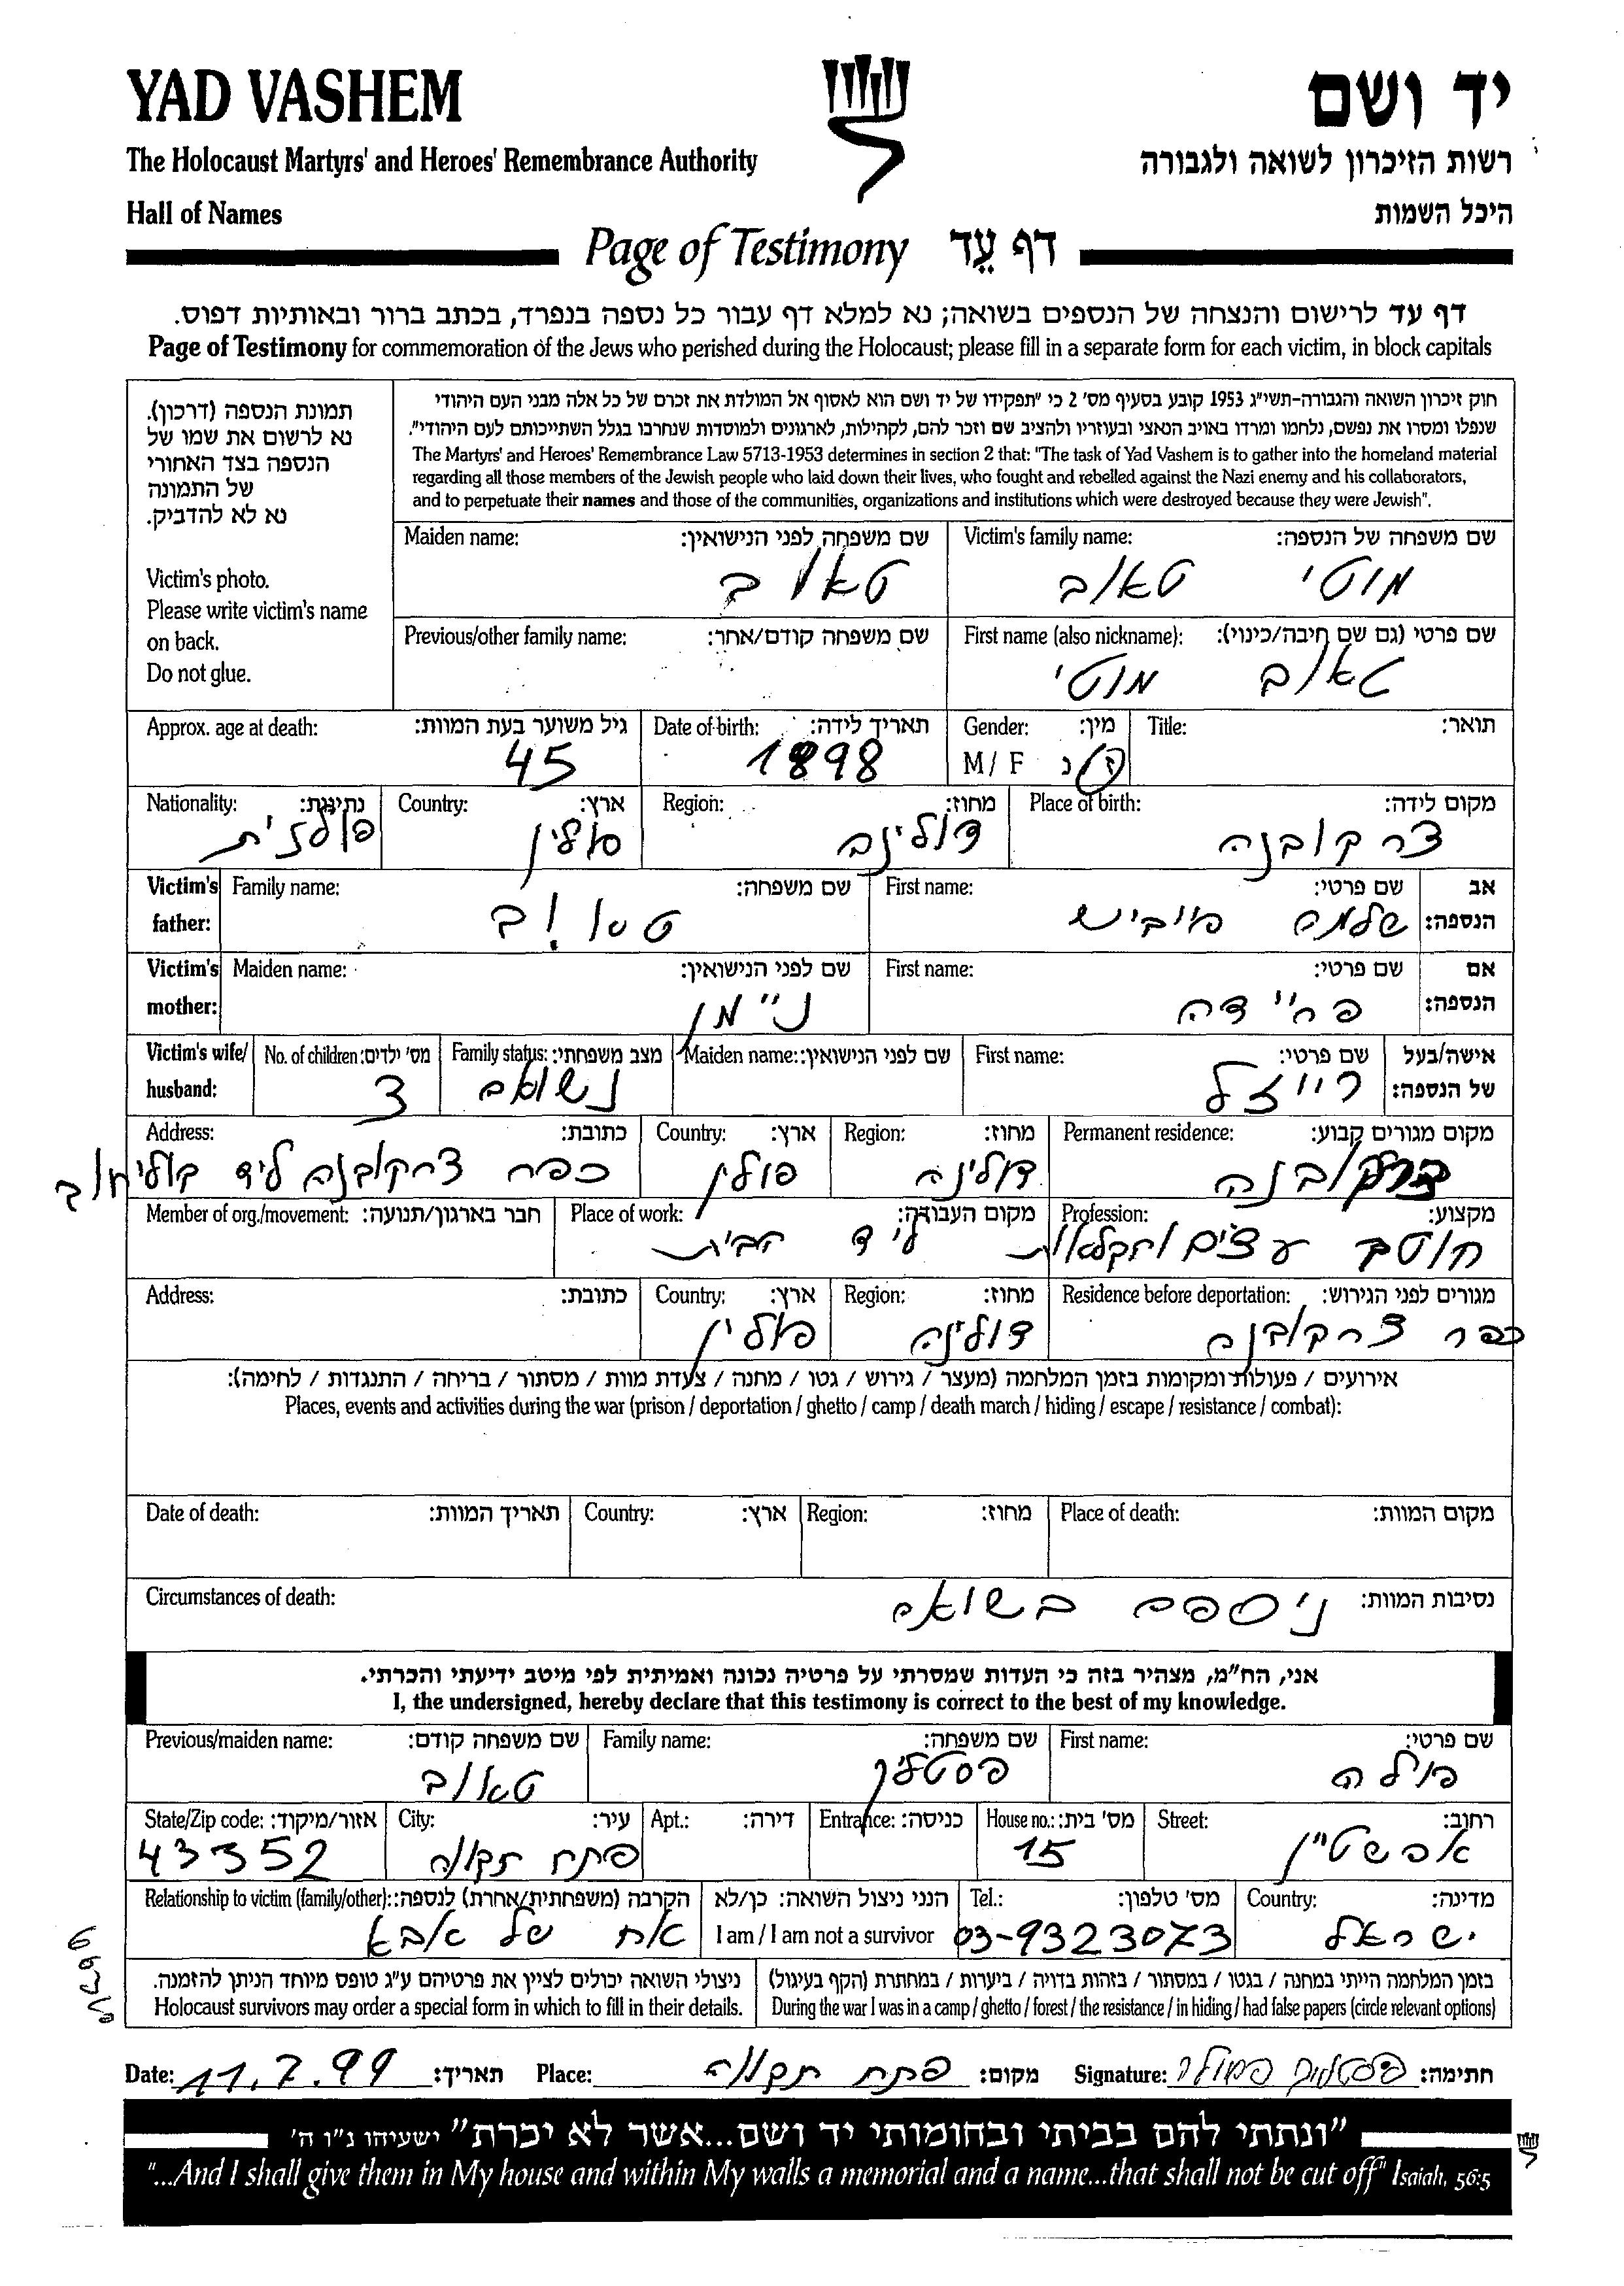 YAD VASHEM
יד ושם
The Holocaust Martyrs' and Heroes' Remembrance Authority
רשות הזיכרון לשואה ולגבורה
Hall of Names
היכל השמות
Page of Testimony דף עֵד
דף עד לרישום והנצחה של הנספים בשואה; נא למלא דף עבור כל נספה בנפרד, בכתב ברור ובאותיות דפוס.
Page of Testimony for commemoration of the Jews who perished during the Holocaust; please fill in a separate form for each victim, in block capitals
תמונת הנספה (דרכון).
נא לרשום את שמו של
הנספה בצד האחורי
של התמונה
נא לא להדביק.
Victim's photo.
Please write victim's name
on back.
Do not glue.
חוק זיכרון השואה והגבורה-תשי"ג 1953 קובע בסעיף מס' 2 כי "תפקידו של יד ושם הוא לאסוף אל המולדת את זכרם של כל אלה מבני העם היהודי
שנפלו ומסרו את נפשם, נלחמו ומרדו באויב הנאצי ובעוזריו ולהציב שם וזכר להם, לקהילות, לארגונים ולמוסדות שנחרבו בגלל השתייכותם לעם היהודי".
The Martyrs' and Heroes' Remembrance Law 5713-1953 determines in section 2 that: "The task of Yad Vashem is to gather into the homeland material
regarding all those members of the Jewish people who laid down their lives, who fought and rebelled against the Nazi enemy and his collaborators,
and to perpetuate their names and those of the communities, organizations and institutions which were destroyed because they were Jewish".
Victim's family name: שם משפחה של הנספה:
מוטי טאוב
Maiden name: שם משפחה לפני הנישואין:
טאוב
First name (also nickname): שם פרטי (גם שם חיבה/כינוי):
טאוב מוטי
Previous/other family name: שם משפחה קודם/אחר:
Title: תואר:
Gender: מין:
M / F ז/נ
Date of birth: תאריך לידה:
1898
Approx. age at death: גיל משוער בעת המוות:
45
Place of birth: מקום לידה:
צרקובנה
Region: מחוז:
דולינה
Country: ארץ:
פולין
Nationality: נתינות:
פולנית
Victim's father: אב הנספה:
First name: שם פרטי:
שלמה
Family name: שם משפחה:
טאוב
Victim's mother: אם הנספה:
First name: שם פרטי:
Maiden name: שם לפני הנישואין:
נ"מן
Victim's wife/ husband: אישה/בעל של הנספה:
First name: שם פרטי:
רייזל
Maiden name: שם לפני הנישואין:
Family status: מצב משפחתי:
נשואה
No. of children: מס' ילדים:
3
Permanent residence: מקום מגורים קבוע:
צרקובנה
Region: מחוז:
דולינה
Country: ארץ:
פולין
Address: כתובת:
כפר צרקובנה ליד בוליחוב
Profession: מקצוע:
חוטב עצים וחקלאות
Place of work: מקום העבודה:
ליד הבית
Member of org./movement: חבר בארגון/תנועה:
Residence before deportation: מגורים לפני הגירוש:
כפר צרקובנה
Region: מחוז:
דולינה
Country: ארץ:
פולין
Address: כתובת:
אירועים / פעולות ומקומות בזמן המלחמה (מעצר / גירוש / גטו / מחנה / צעדת מוות / מסתור / בריחה / התנגדות / לחימה):
Places, events and activities during the war (prison / deportation / ghetto / camp / death march / hiding / escape / resistance / combat):
Place of death: מקום המוות:
Region: מחוז:
Country: ארץ:
Date of death: תאריך המוות:
Circumstances of death: נסיבות המוות:
ניספה בשואה
אני, הח"מ, מצהיר בזה כי העדות שמסרתי על פרטיה נכונה ואמיתית לפי מיטב ידיעתי והכרתי.
I, the undersigned, hereby declare that this testimony is correct to the best of my knowledge.
First name: שם פרטי:
פולה
Family name: שם משפחה:
פסטלין
Previous/maiden name: שם משפחה קודם:
טאוב
Street: רחוב:
House no.: מס' בית:
15
Entrance: כניסה:
Apt.: דירה:
City: עיר:
פתח תקוה
State/Zip code: אזור/מיקוד:
43352
Country: מדינה:
ישראל
Tel.: מס' טלפון:
03-9323073
הנני ניצול השואה: כן/לא
I am / I am not a survivor
Relationship to victim (family/other): הקרבה (משפחתית/אחרת) לנספה:
אח של אבא
בזמן המלחמה הייתי במחנה / בגטו / במסתור / בזהות בדויה / ביערות / במחתרת (הקף בעיגול)
During the war I was in a camp / ghetto / forest / the resistance / in hiding / had false papers (circle relevant options)
ניצולי השואה יכולים לציין את פרטיהם ע"ג טופס מיוחד הניתן להזמנה.
Holocaust survivors may order a special form in which to fill in their details.
Date: 11.7.99 תאריך:
Place: פתח תקוה מקום:
Signature: חתימה:
"ונתתי להם בביתי ובחומותי יד ושם...אשר לא יכרת" ישעיהו נ"ו ה'
"...And I shall give them in My house and within My walls a memorial and a name...that shall not be cut off" Isaiah, 56:5